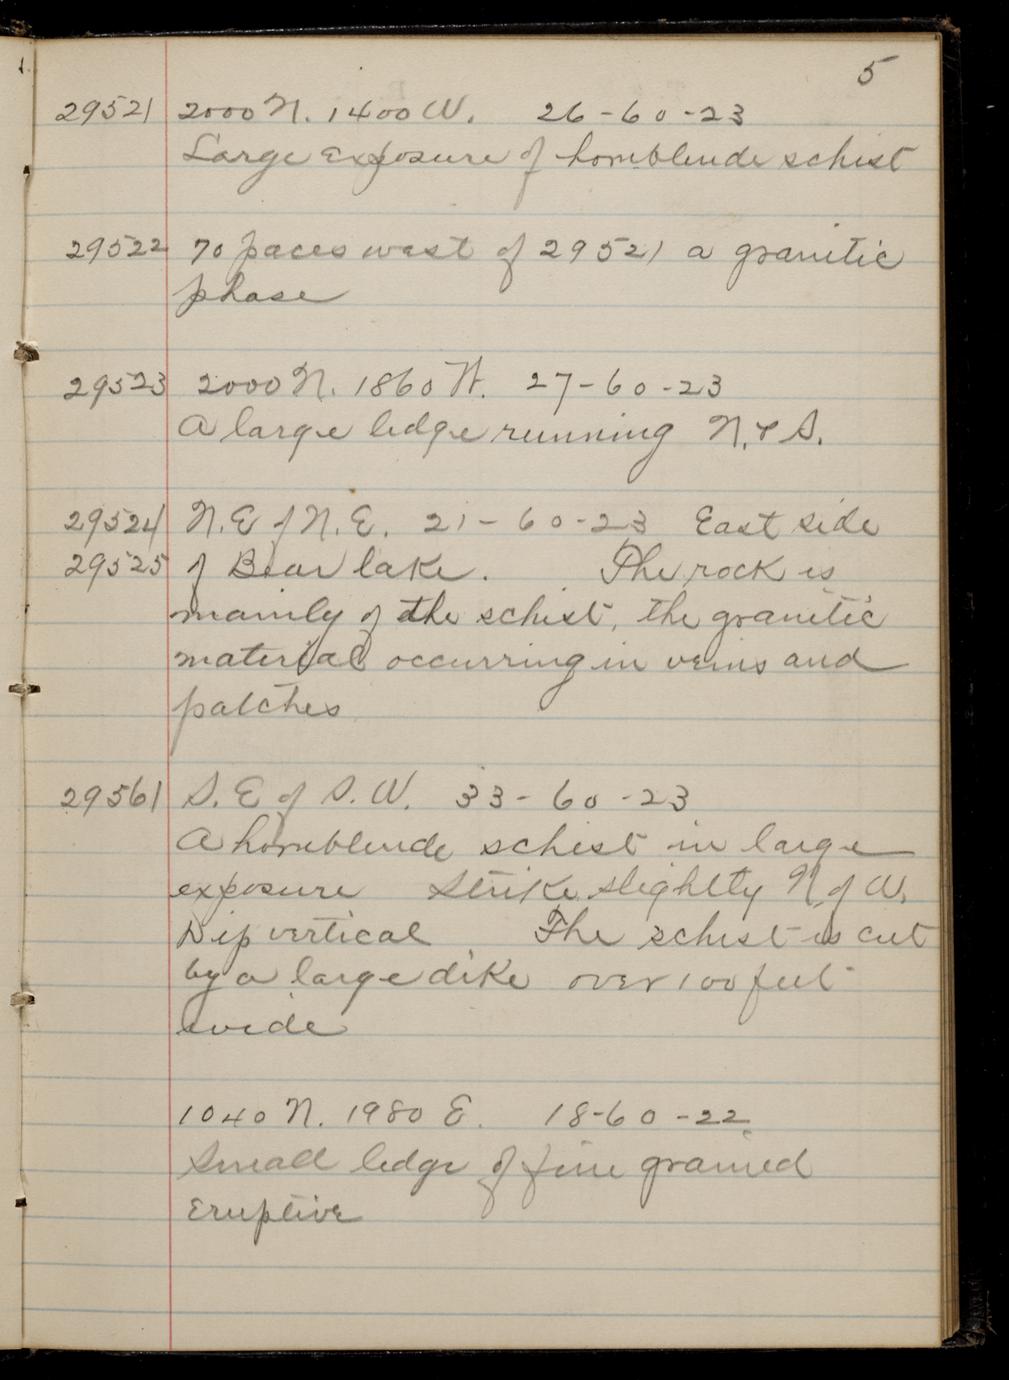 5
29521 2000 N. 1400 W. 26-60-23
Large exposure of hornblende schist
29522 70 paces west of 29521 a granitic
phase
29523 2000 N. 1860 W. 27-60-23
A large ledge running N. & S.
29524 N.E of N.E. 21-60-23 East side
29525 of Bear lake. The rock is
mainly of the schist, the granitic
material occurring in veins and
patches
29561 S.E of S.W. 33-60-23
A hornblende schist in large
exposure Strike slightly N of W.
Dip vertical. The schist is cut
by a large dike over 100 feet
wide
1040 N. 1980 E. 18-60-22
Small ledge of fine grained
eruptive